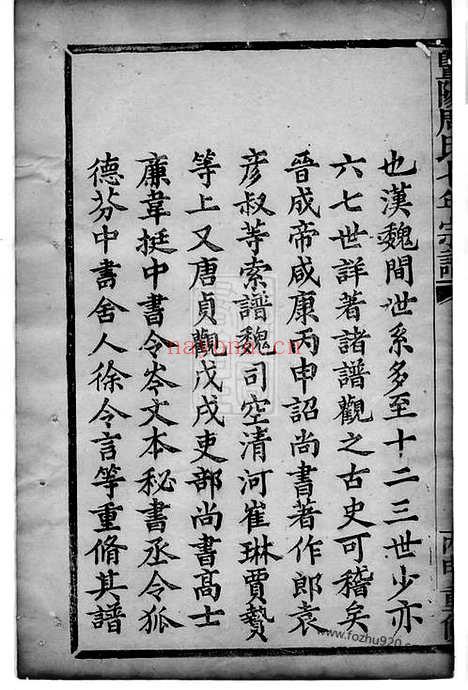 暨陽周氏 宗譜
也漢魏間世系多至十二三世少亦
六七世詳著諸譜觀之古史可稽矣
晉成帝咸康丙申詔尚書著作郎袁
彦叔等索譜魏司空清河崔琳賈贄
等上又唐貞觀戊戌吏部尚書高士
廉韋挺中書令岑文本秘書丞令狐
德芬中書舍人徐令言等重脩其譜
丙申重脩
nayona.cn
www.fozhu920.com